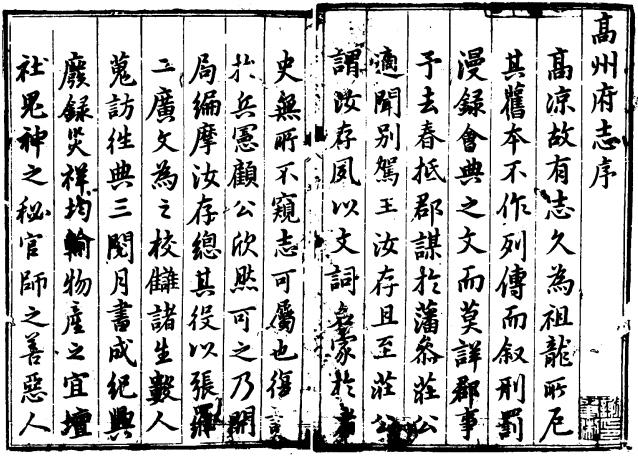 高州府志序
高凉故有志久為祖龍所厄
其舊本不作列傳而叙刑罰
漫録會典之文而莫詳郡事
予去春抵郡謀於藩叅莊公
適聞别駕王汝存且至莊公
謂汝存夙以文詞名家於書
史無所不窺志可屬也復
扵兵憲顧公欣然可之乃開
局編摩汝存總其役以張羅
二廣文為之校讎諸生數人
蒐訪徃典三閱月書成紀輿
廢録灾祥均輸物産之宜壇
社鬼神之秘官師之善惡人